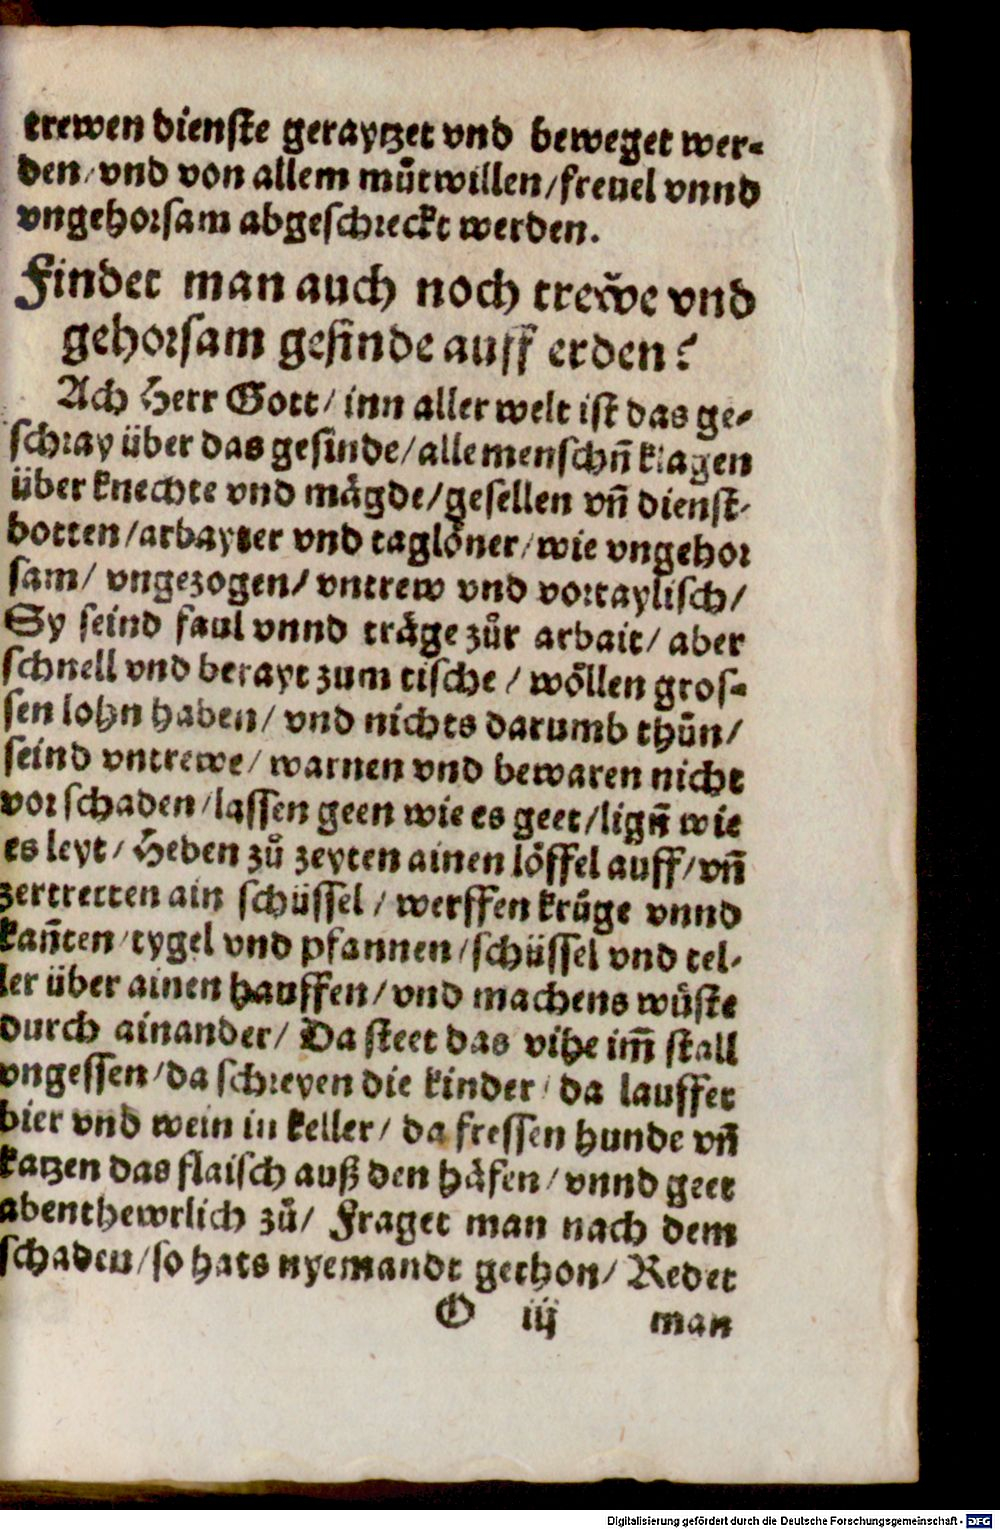 trewen dienste geraytzet vnd beweget wer-
den/ vnd von allem můtwillen/ freuel vnnd
vngehorsam abgeschreckt werden.
Findet man auch noch trewe vnd
gehorsam gesinde auff erden?
Ach Herr Gott/ inn aller welt ist das ge-
schray über das gesinde/ alle menschñ klagen
über knechte vnd mågde/ gesellen vñ dienst-
botten/ arbayter vnd taglöner/ wie vngehor
sam/ vngezogen/ vntrew vnd vortaylisch/
Sy seind faul vnnd tråge zůr arbait/ aber
schnell vnd berayt zum tische/ wöllen gros-
sen lohn haben/ vnd nichts darumb thůn/
seind vntrewe/ warnen vnd bewaren nicht
vor schaden/ lassen geen wie es geet/ ligñ wie
es leyt/ Heben zů zeyten ainen löffel auff/ vñ
zertretten ain schüssel/ werffen krůge vnnd
kañten/ tygel vnd pfannen/ schüssel vnd tel-
ler über ainen hauffen/ vnd machens wůste
durch ainander/ Da steet das vihe im̃ stall
vngessen/ da schreyen die kinder/ da lauffet
bier vnd wein in keller/ da fressen hunde vñ
katzen das flaisch auß den håfen/ vnnd geet
abenthewrlich zů/ Fraget man nach dem
schaden/ so hats nyemandt gethon/ Redet
O iij man
Digitalisierung gefördert durch die Deutsche Forschungsgemeinschaft - DFG